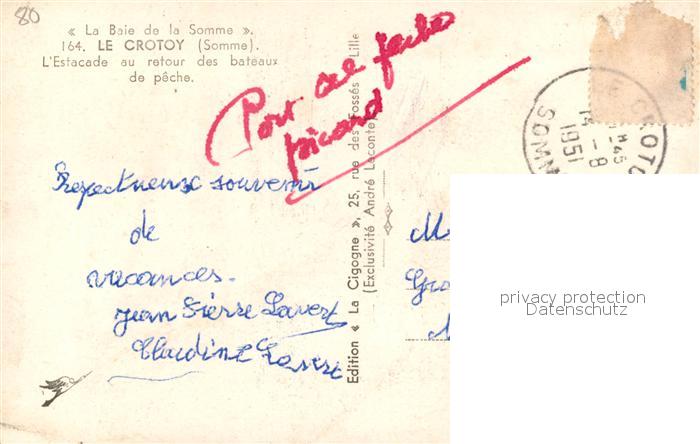 80
« La Baie de la Somme ».
164. LE CROTOY (Somme).
L'Estacade au retour des bateaux
de pêche.
Port de pêche
picard
Respectueux souvenir
de
vacances.
Jean Pierre
Claudine
Edition « La Cigogne », 25, rue des Fossés - Lille
(Exclusivité André Leconte)
CROTOY
14 - 8
1951
SOMME
M
privacy protection
Datenschutz